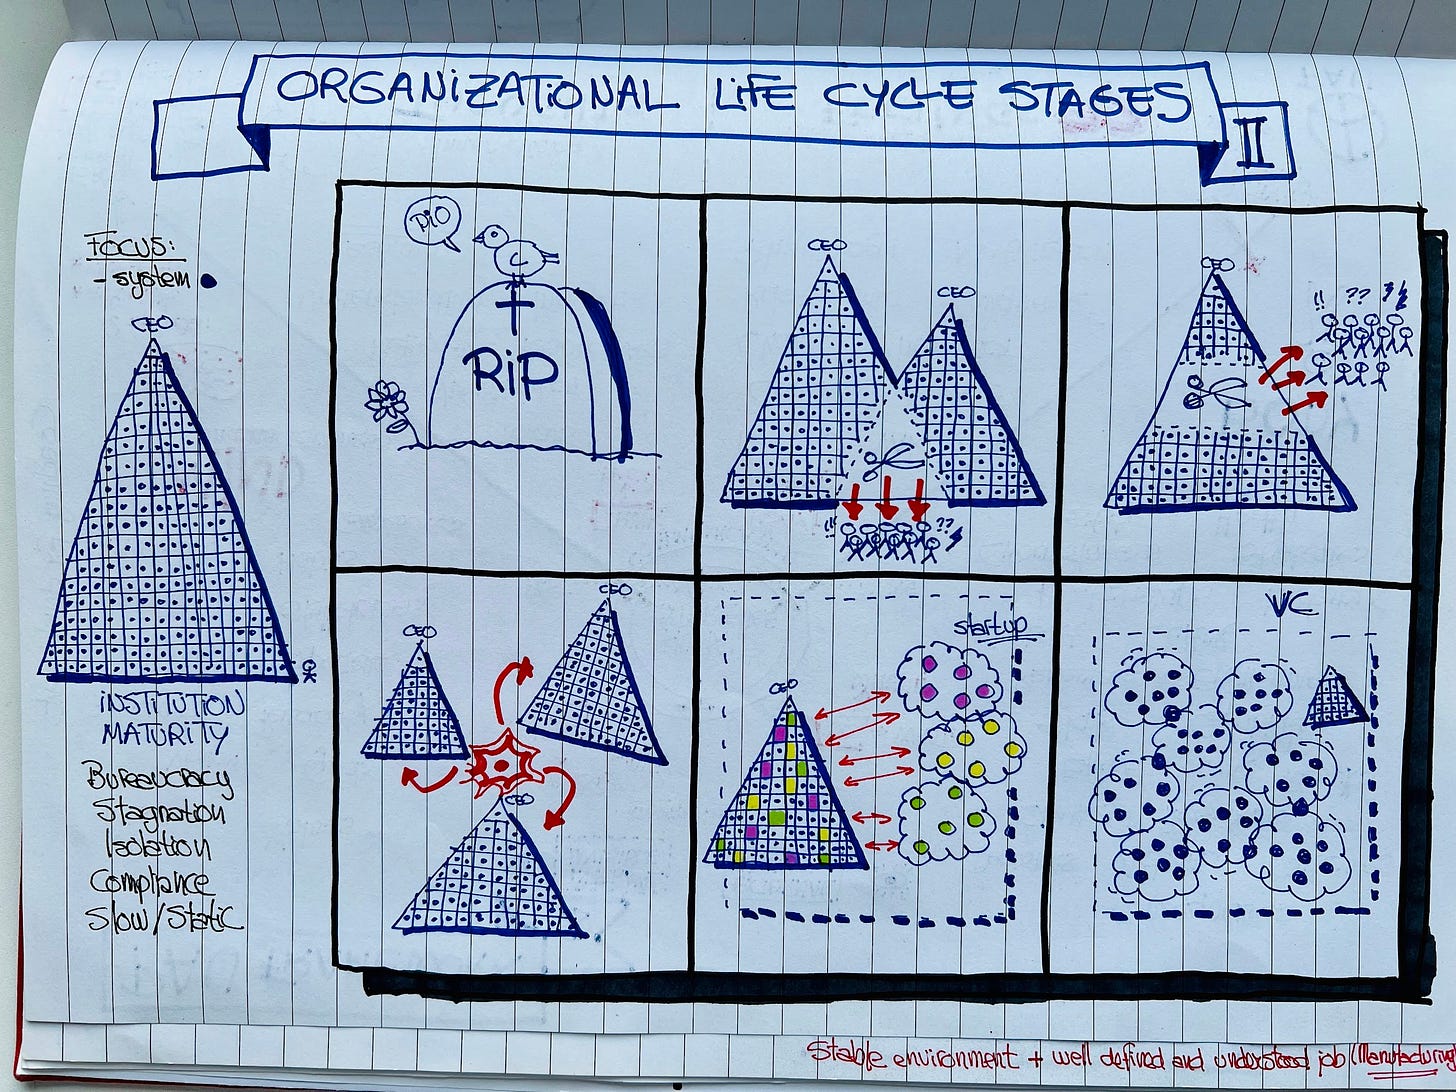 ORGANiZATiONAL LiFE CYCLE STAGES
II
FOCUS:
- system
CEO
iNSTiTUTiON
MATURiTY
Bureaucracy
Stagnation
Isolation
Compliance
Slow/Static
PiO
RiP
CEO
CEO
!!
??
CEO
!!
??
CEO
CEO
CEO
startup
CEO
VC
Stable environment + well defined and understood job (Manufacturing